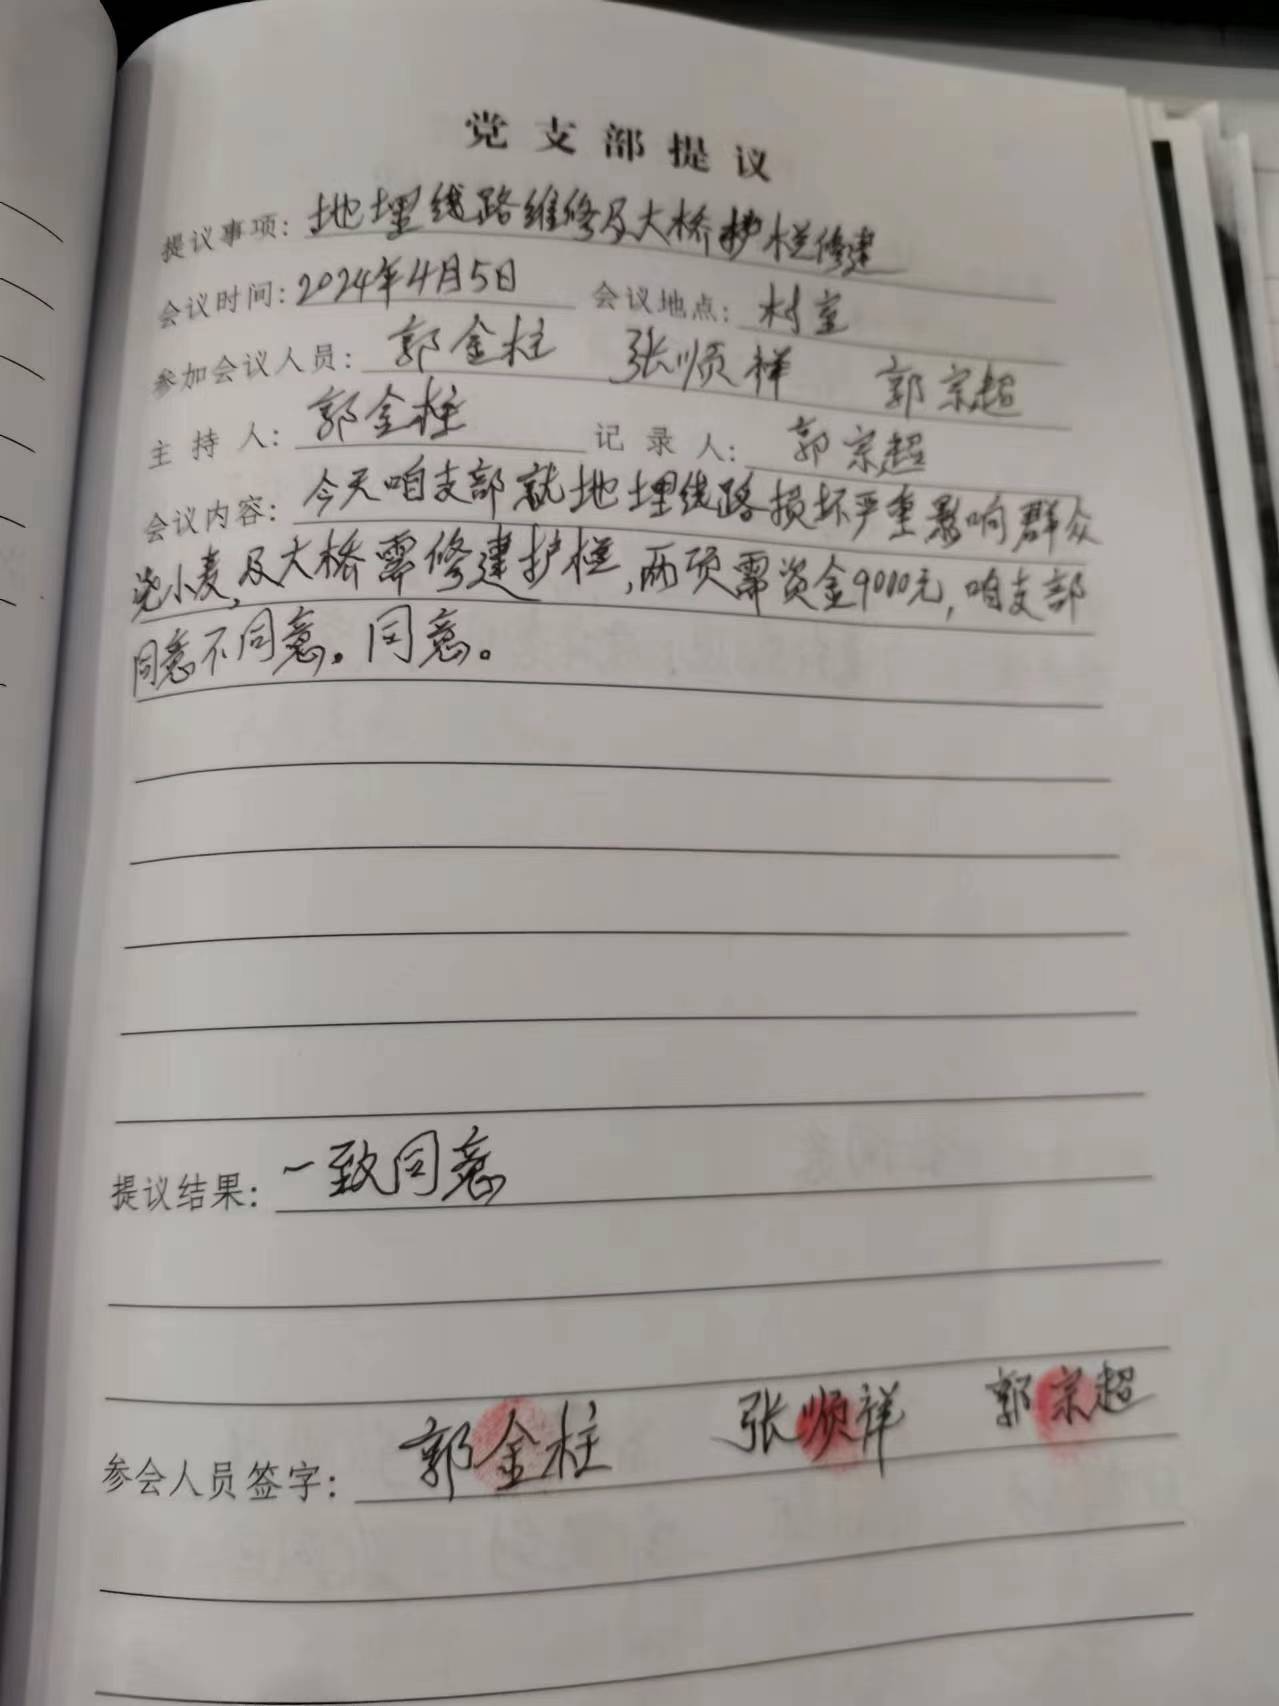 党支部提议
提议事项：地埋线路维修及大桥护栏修建
会议时间：2024年4月5日 会议地点：村室
参加会议人员：郭金柱 张顺祥 郭宗超
主持人：郭金柱 记录人：郭宗超
会议内容：今天咱支部就地埋线路损坏严重影响群众
浇小麦，及大桥需修建护栏，两项需资金9010元，咱支部
同意不同意。同意。
提议结果：一致同意
参会人员签字：郭金柱 张顺祥 郭宗超